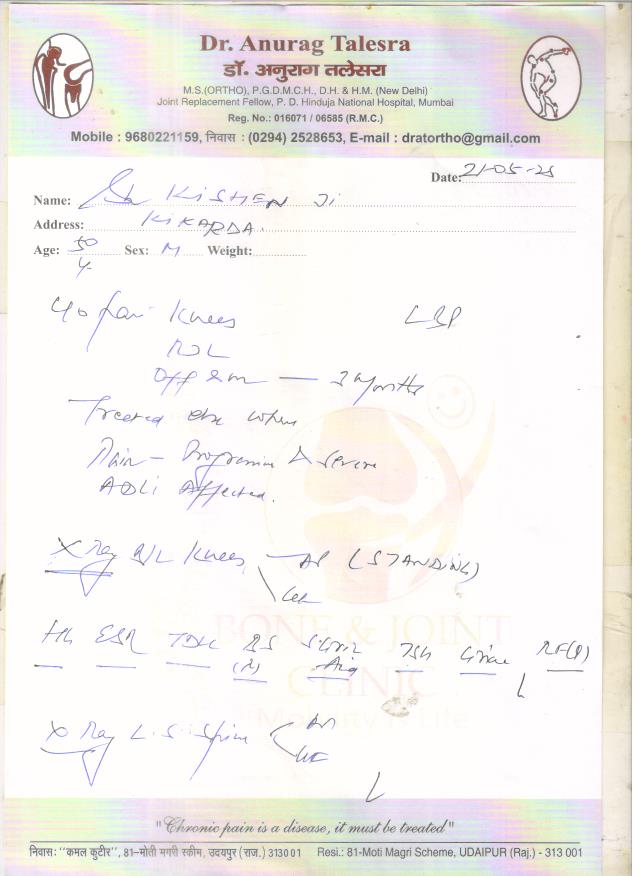 Dr. Anurag Talesra
डॉ. अनुराग तलेसरा
M.S.(ORTHO), P.G.D.M.C.H., D.H. & H.M. (New Delhi)
Joint Replacement Fellow, P. D. Hinduja National Hospital, Mumbai
Reg. No.: 016071 / 06585 (R.M.C.)
Mobile : 9680221159, निवास : (0294) 2528653, E-mail : dratortho@gmail.com
Date: 21-05-25
Name: Sh KISHEN Ji
Address: KIKARDA.
Age: 50 Y. Sex: M Weight:
Knees LBP
Off & on — 3 Months
Treated else where
Pain - Progressive & severe
ADLi Affected.
X Ray B/L Knees AP (STANDING)
Lat
Hb ESR TDLC BS TSH Urine RF(Q)
(R)
BONE & JOINT
CLINIC
Mobility is Life
X Ray L.S. Spine AP
"Chronic pain is a disease, it must be treated"
निवास: "कमल कुटीर", 81-मोती मगरी स्कीम, उदयपुर (राज.) 313001 Resi.: 81-Moti Magri Scheme, UDAIPUR (Raj.) - 313 001